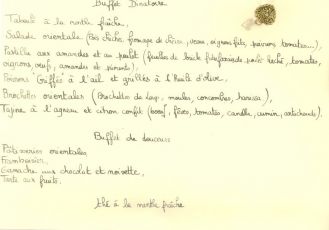 Buffet Dinatoire
Taboulé à la menthe fraîche,
Salade orientale (fromage de chèvre, oignons frits, poivrons tomates...),
Pastilla aux amandes et au poulet (feuilles de brick tomates,
oignons oeuf, amandes et piments),
Poivrons "Griffés" à l'ail et grillés à l'huile d'olive,
Brochettes orientales (Brochette de loup, moules, concombres, harissa),
Tajine à l'agneau et citron confit (fèves, tomates, canelle, cumin, artichauts).
Buffet de douceurs
Pâtisseries orientales
Framboisier,
Ganache aux chocolat et noisette,
Tarte aux fruits.
thé à la menthe fraîche